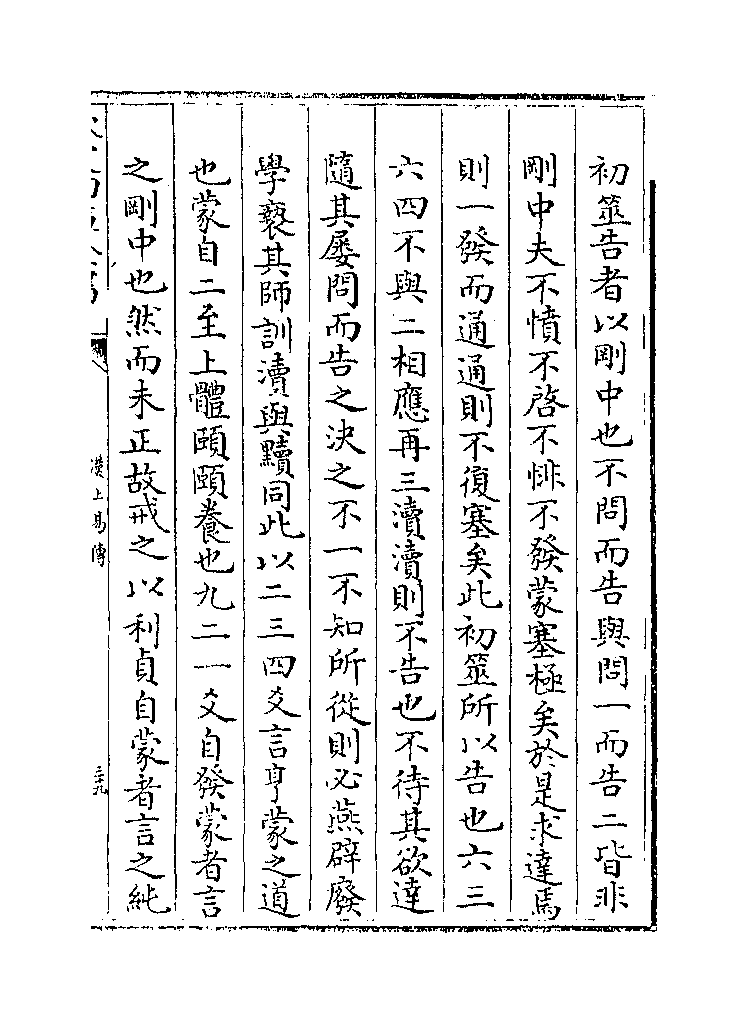 初筮告者以剛中也不問而告與問一而告二皆非
剛中夫不憤不啓不悱不發蒙塞極矣於是求達焉
則一發而通通則不復塞矣此初筮所以告也六三
六四不與二相應再三瀆瀆則不告也不待其欲達
隨其屢問而告之決之不一不知所從則必燕辟廢
學褻其師訓瀆與黷同此以二三四爻言亨蒙之道
也蒙自二至上體頤頤養也九二一爻自發蒙者言
之剛中也然而未正故戒之以利貞自蒙者言之純
漢上易傳
三十九